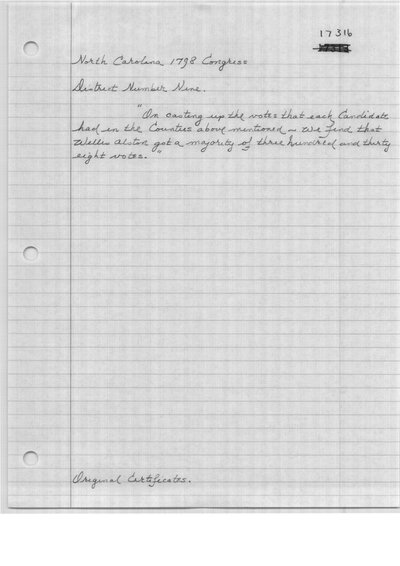 17316
North Carolina 1798 Congress
District Number Nine.
"On casting up the votes that each Candidate
had in the Counties above mentioned - we find that
Willis Alston got a majority of three hundred and thirty
eight votes."
Original Certificates.